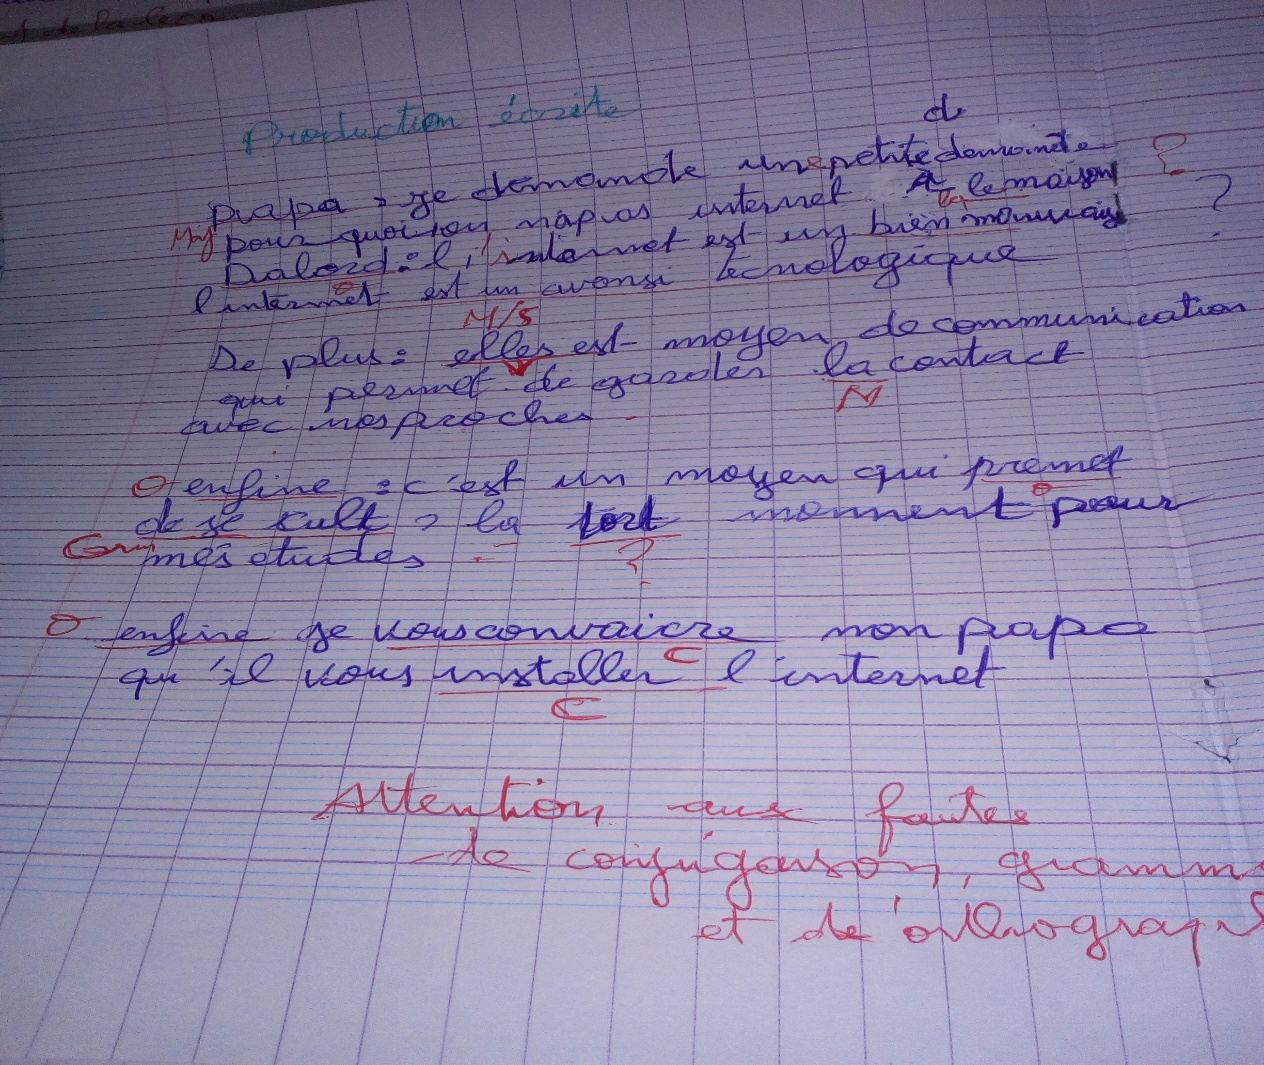 Production écrite
de
papa, je demande une petite demande ?
pour quoi on n'a pas internet A la le maison
Dabord : l'internet est un bien mauvais ?
l'internet est un avansi tecnologique
M/S
De plus : elles est moyen de communication
qui permet de garder la contact
M
avec nos proches
O enfine : c'est un moyen qui premet
de se cult, la tort moment pour
mes études ?
O enfine je vous convaicre mon papa
C
qu'il vous installer l'internet
C
Attention aux fautes
de conjugaison, gramm
et de l'orthograp